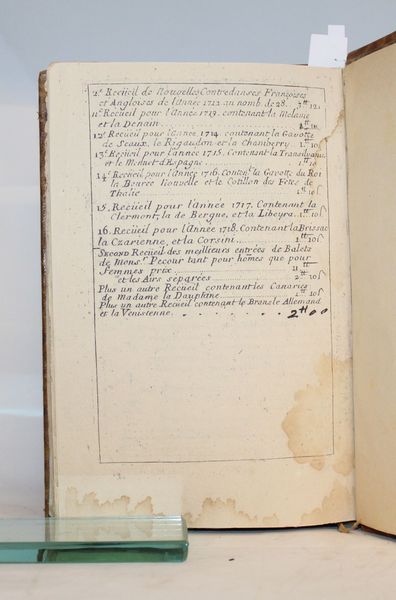 2.e Recüeil de Nouvelles Contredanses Françoises
et Angloises de l'Année 1712 au nomb. de 28. 3tt 12s
11e Recüeil pour l'année 1713. contenant la Melanie
et la Denain
12e Recüeil pour l'Année 1714. contenant la Gavotte
de Sceaux, le Rigaudon et la Chamberry 1tt 10s
13e Recüeil pour l'année 1715. Contenant la Transilvanie
et le Minuet d'Espagne 1tt 10
14e Recüeil pour l'Année 1716. Conten.t la Gavotte du Roi
la Bourée Nouvelle et le Cotillon des Fêtes de
Thalie 1tt 10s
15. Recüeil pour l'année 1717. Contenant la
Clermont, la de Bergue, et la Libeyra. 1tt 10s
16. Recüeil pour l'Année 1718. Contenant la Brissac
la Czarienne, et la Corsini 1tt 10s
Second Recüeil des meilleurs entrées de Balets
de Mons.r Pecour tant pour homes que pour
Femmes prix 11tt
et les Airs séparées 2tt 10s
Plus un autre Recueil contenant les Canaries
de Madame la Dauphine 1tt 10s
Plus un autre Recüeil contenant le Bransle Allemand
et la Venistenne 2tt 00